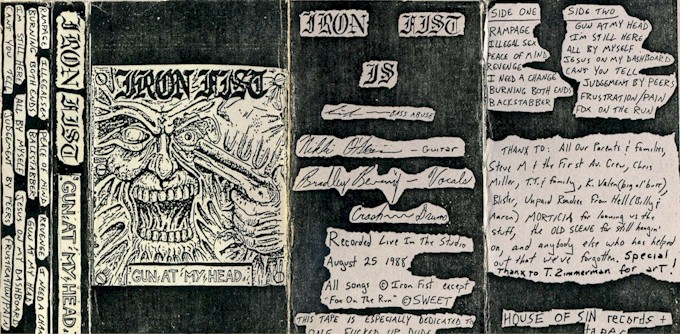 RAMPAGE ILLEGAL SEX PEACE OF MIND REVENGE I NEED A CHANGE
BURNING BOTH ENDS BACKSTABBER GUN AT MY HEAD
I'M STILL HERE ALL BY MYSELF JESUS ON MY DASHBOARD
CANT YOU TELL JUDGEMENT BY PEERS FRUSTRATION/PAIN
IRON FIST GUN AT MY HEAD
IRON FIST
GUN AT MY HEAD
IRON FIST
IS
BASS ABUSE
- GUITAR
Bradley - Vocals
Drums
Recorded Live In The Studio
August 25 1988
All songs © Iron Fist except
"Fox On The Run" © SWEET
THIS TAPE IS ESPECIALLY DEDICATED TO
ONE FUCKED UP DUDE
SIDE ONE
RAMPAGE
ILLEGAL SEX
PEACE OF MIND
REVENGE
I NEED A CHANGE
BURNING BOTH ENDS
BACKSTABBER
SIDE TWO
GUN AT MY HEAD
I'M STILL HERE
ALL BY MYSELF
JESUS ON MY DASHBOARD
CANT YOU TELL
JUDGEMENT BY PEERS
FRUSTRATION/PAIN
FOX ON THE RUN
THANX TO: All Our Parents & families,
Steve M & the First Av. Crew, Chris
Miller, T.T. & family, K. Valen (big ol' burt),
Blister, Unpaid Roadies From Hell (Billy &
Aaron) MORTICIA for loaning us the
stuff, the OLD SCENE for still hangin'
on, and anybody else who has helped
out that we've forgotten. Special
Thanx to T. Zimmerman for art!
HOUSE OF SIN records +